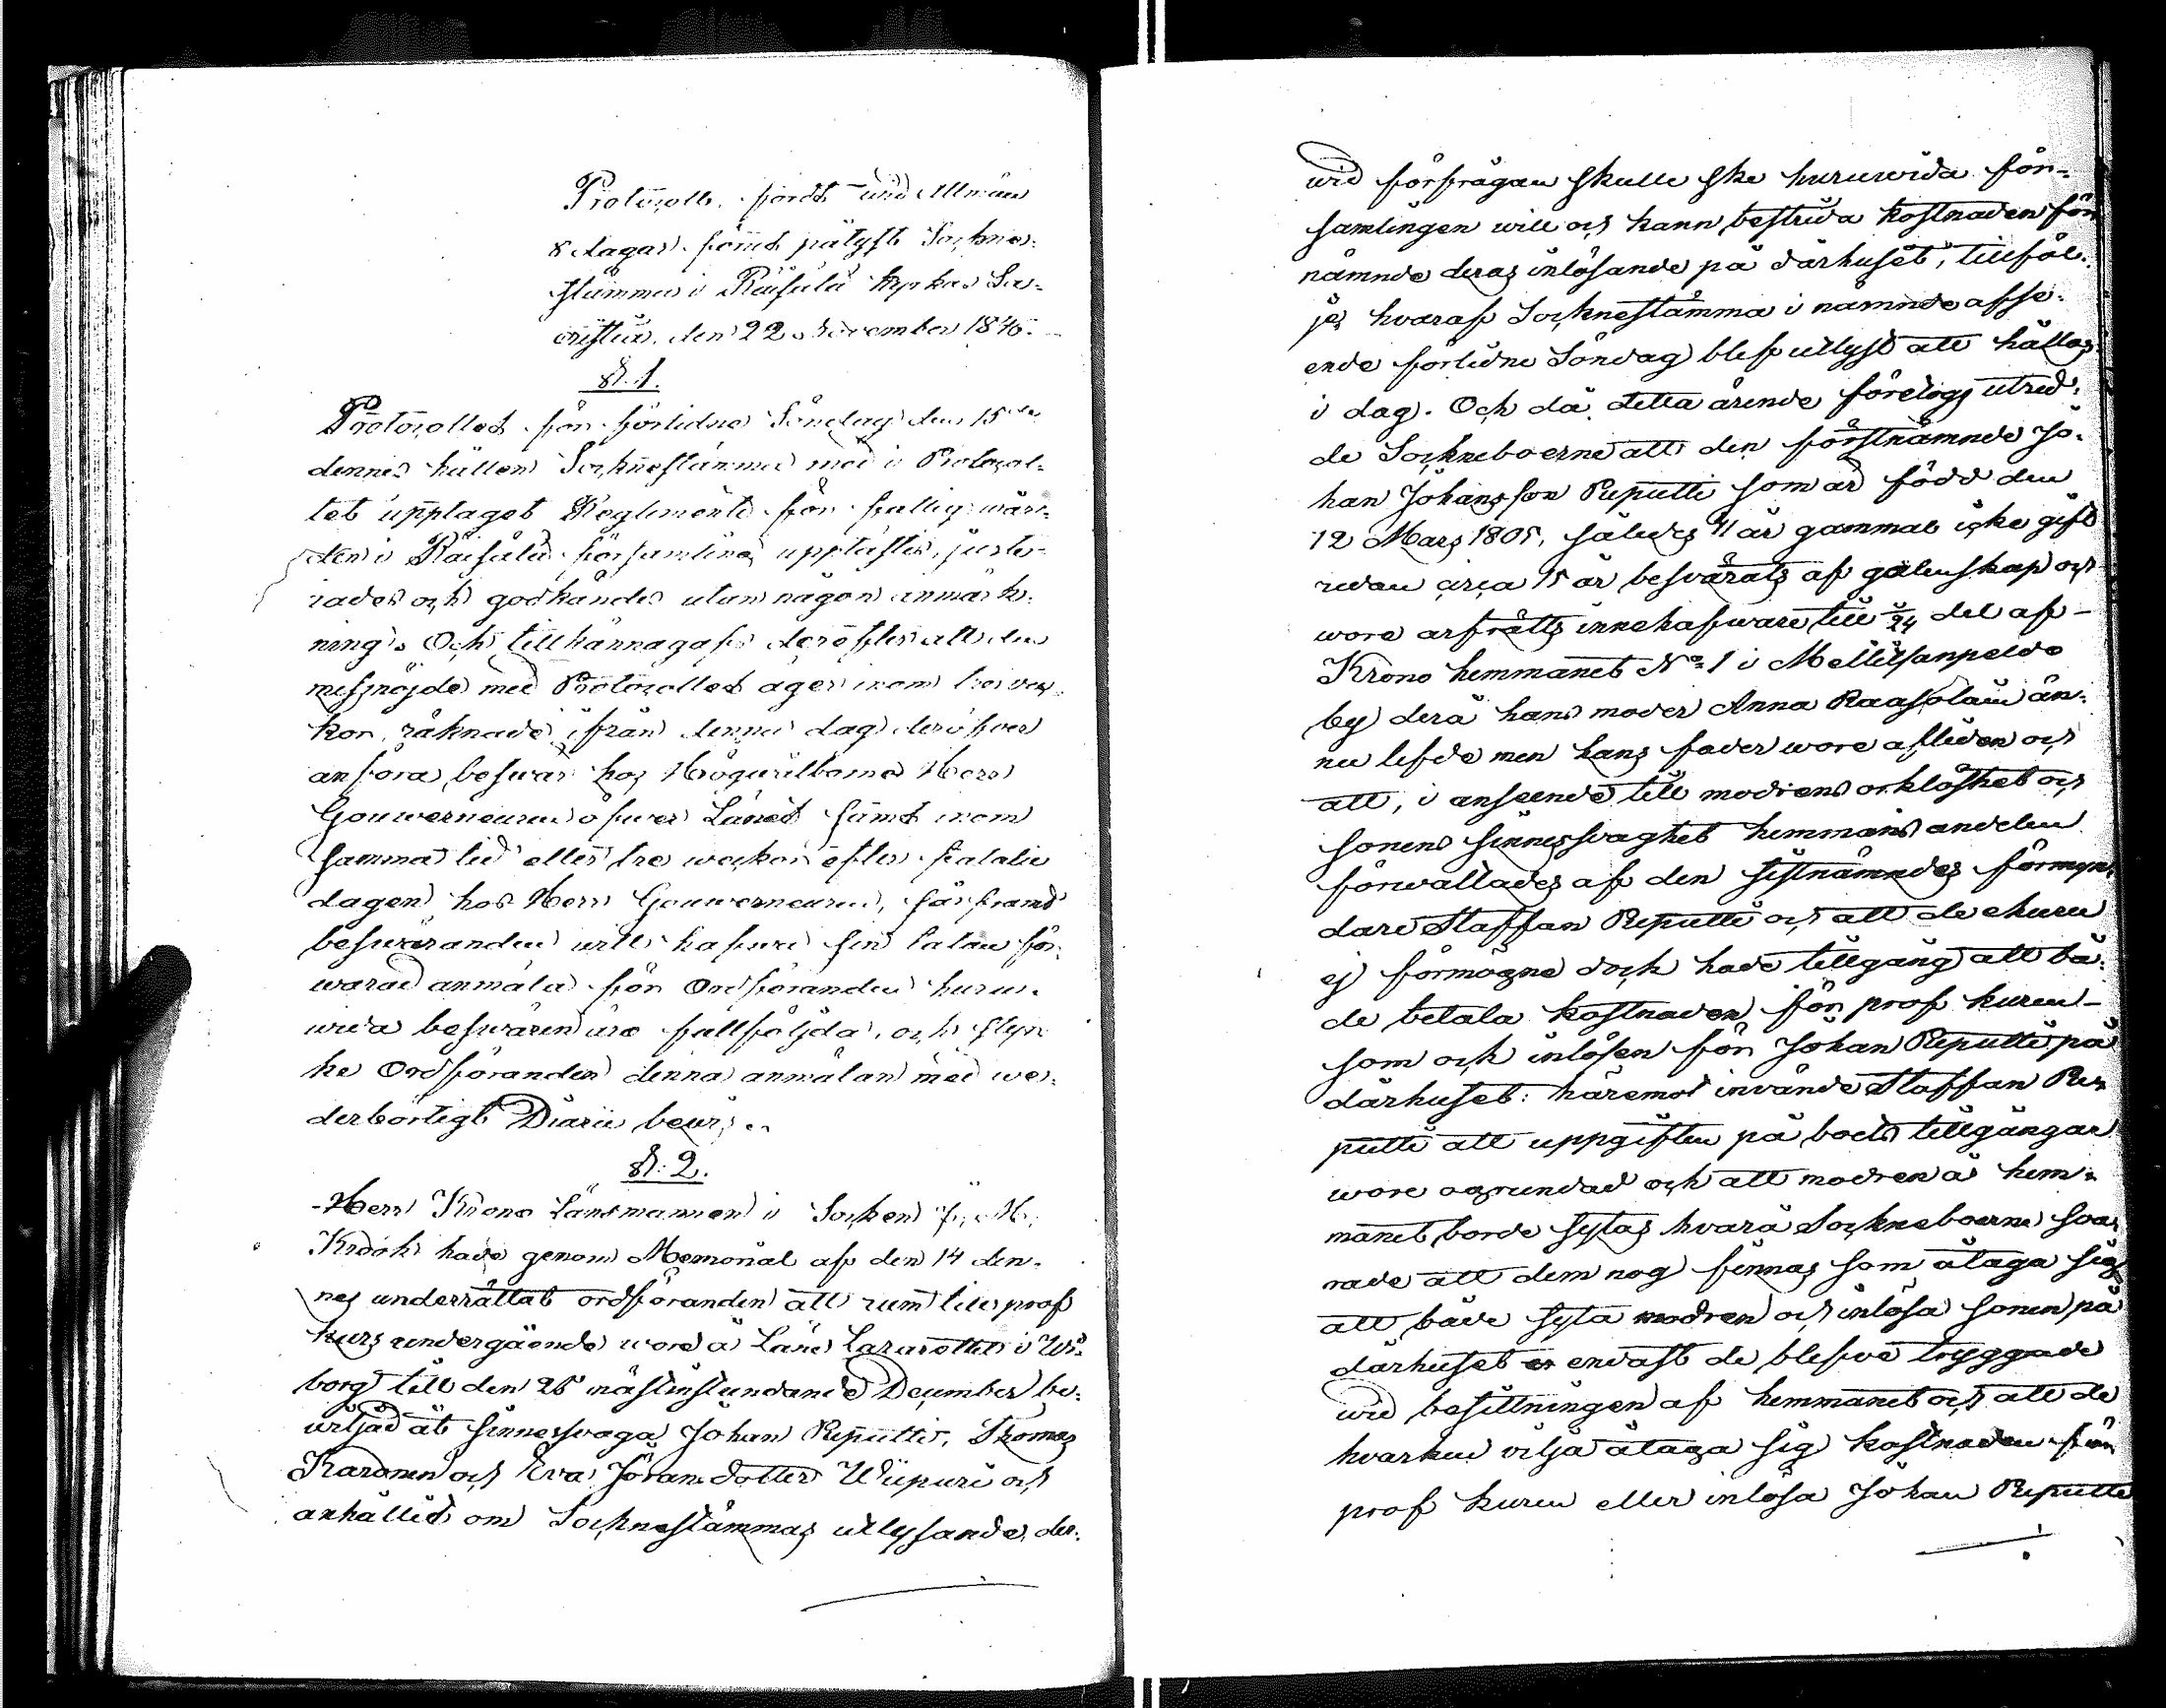 Protocoll, fördt wid Allmän
8 dagar förut pålyst Sockne-
stämma i Räisälä kyrkas Sa-
cristia, den 22 November 1846.
§. 1.
Protocollet för förlidne Söndag den 15de
dennes hållen Sockne stämma med i Protocol-
let upptaget Reglemente för fattig wår-
den i Räisälä församling upplästes, juste-
rades och godkändes utan någon anmärk-
ning. Och tillkännagafs derefter att den
missnöjde med Protocollet äger inom tre vec-
kor, räknade ifrån denna dag deröfver
anföra beswär hos Högwälborne Herr
Gouwerneuren öfwer Länet samt inom
samma tid eller tre weckor efter fatalie
dagen hos Herr Gouwerneuren, får framd
beswäranden will hafwa sin talan för-
warad anmäla för Ordföranden huru-
wida beswären äro fullföljda, och styr-
ke Ordföranden denna anmälan med we-
derbörligt Diarii bewis.
§. 2.
Herr Krono Länsmannen i Socken
Krook hade genom Memorial af den 14 den-
nes underrättat ordföranden att rum till prof
kurs undergående word å Läns Lazarettet i Wi-
borg till den 26 nästinstundande December be-
wiljad åt sinnessvaga Johan Reputti, Thomas
Karonen och Eva Jörans dotter Wiipuri och
anhållit om Socknestämmas utlysande, der-
wid förfrågan skulle ske huruwida för-
samlingen will och kann bestrida kostnaden för
nämnde deras inlösande på dårhuset, till föl-
je hvaraf Socknestämma i nämnde afse-
ende förlidne Söndag blef utlyst att hållas
i dag. Och då detta ärende företogs utred-
de Sockneboerne att den förstnämnde Jo-
han Johansson Reputti som är född den
12 Mars 1805, således 41 år gammal icke gift
redan circa 15 år besvärats af galenskap och
wore arfrätts innehafware till /24 del af
Krono hemmanet No 1 i Mellilsanpeldo
by derå hans moder Anna Raasolain än-
nu lefde men hans fader wore afliden och
att, i anseende till modrens orklöshet och
sonens sinnessvaghet hemmans andelen
förwaltades af den sistnämndes förmyn-
dare Staffan Reputti och att de ehuru
ej förmögne dock hade tillgång att bå-
de betala kostnaden för prof kuren
som och inlösen för Johan Reputti på
dårhuset: häremot invände Staffan Re-
putti att uppgiften på boets tillgångar
wore ogrundad och att modren å hem-
manet borde sytas hvarå Sockneboerne sva-
rade att dem nog finnas som åtaga sig
att både syta modren och inlösa sonen på
dårhuset endast de blefve tryggade
wid besittningen af hemmanet och att de
hvarken vilja åtaga sig kostnaden för
prof kuren eller inlösa Johan Reputti